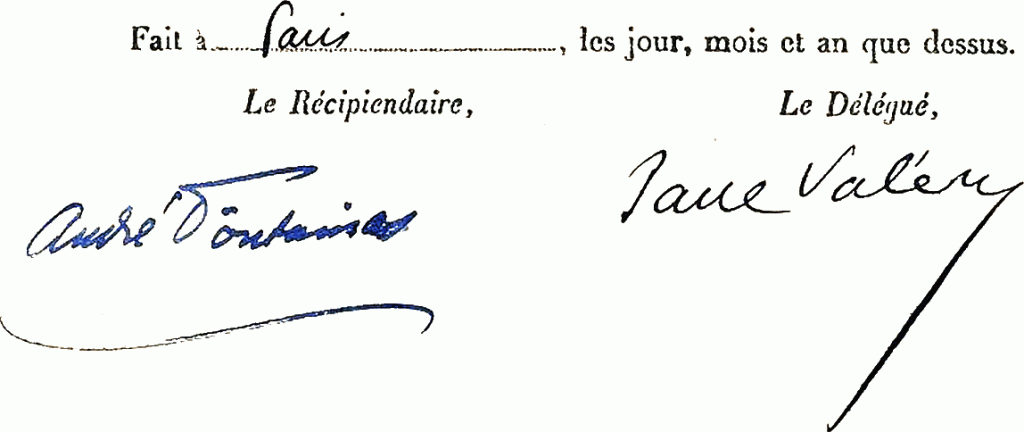 Fait à Paris, les jour, mois et an que dessus.
Le Récipiendaire, Le Délégué,
André Fontainas Paul Valéry